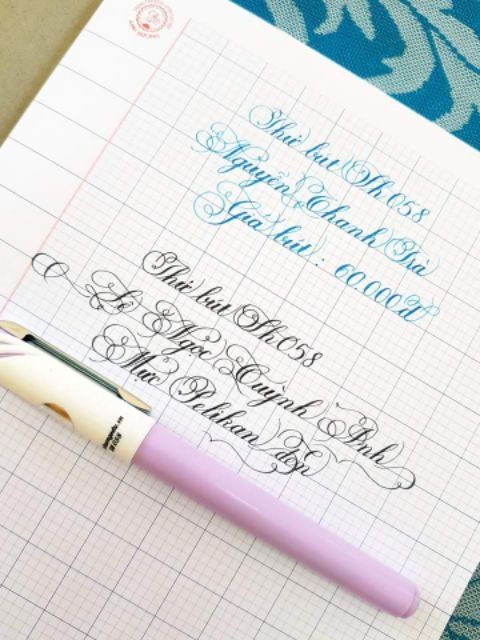 Thử bút Sh 058
Nguyễn Thanh Trà
Giá bút : 60.000đ
Thử bút Sh 058
Ngọc Quỳnh Anh
Mực Pelikan đen
SH 058